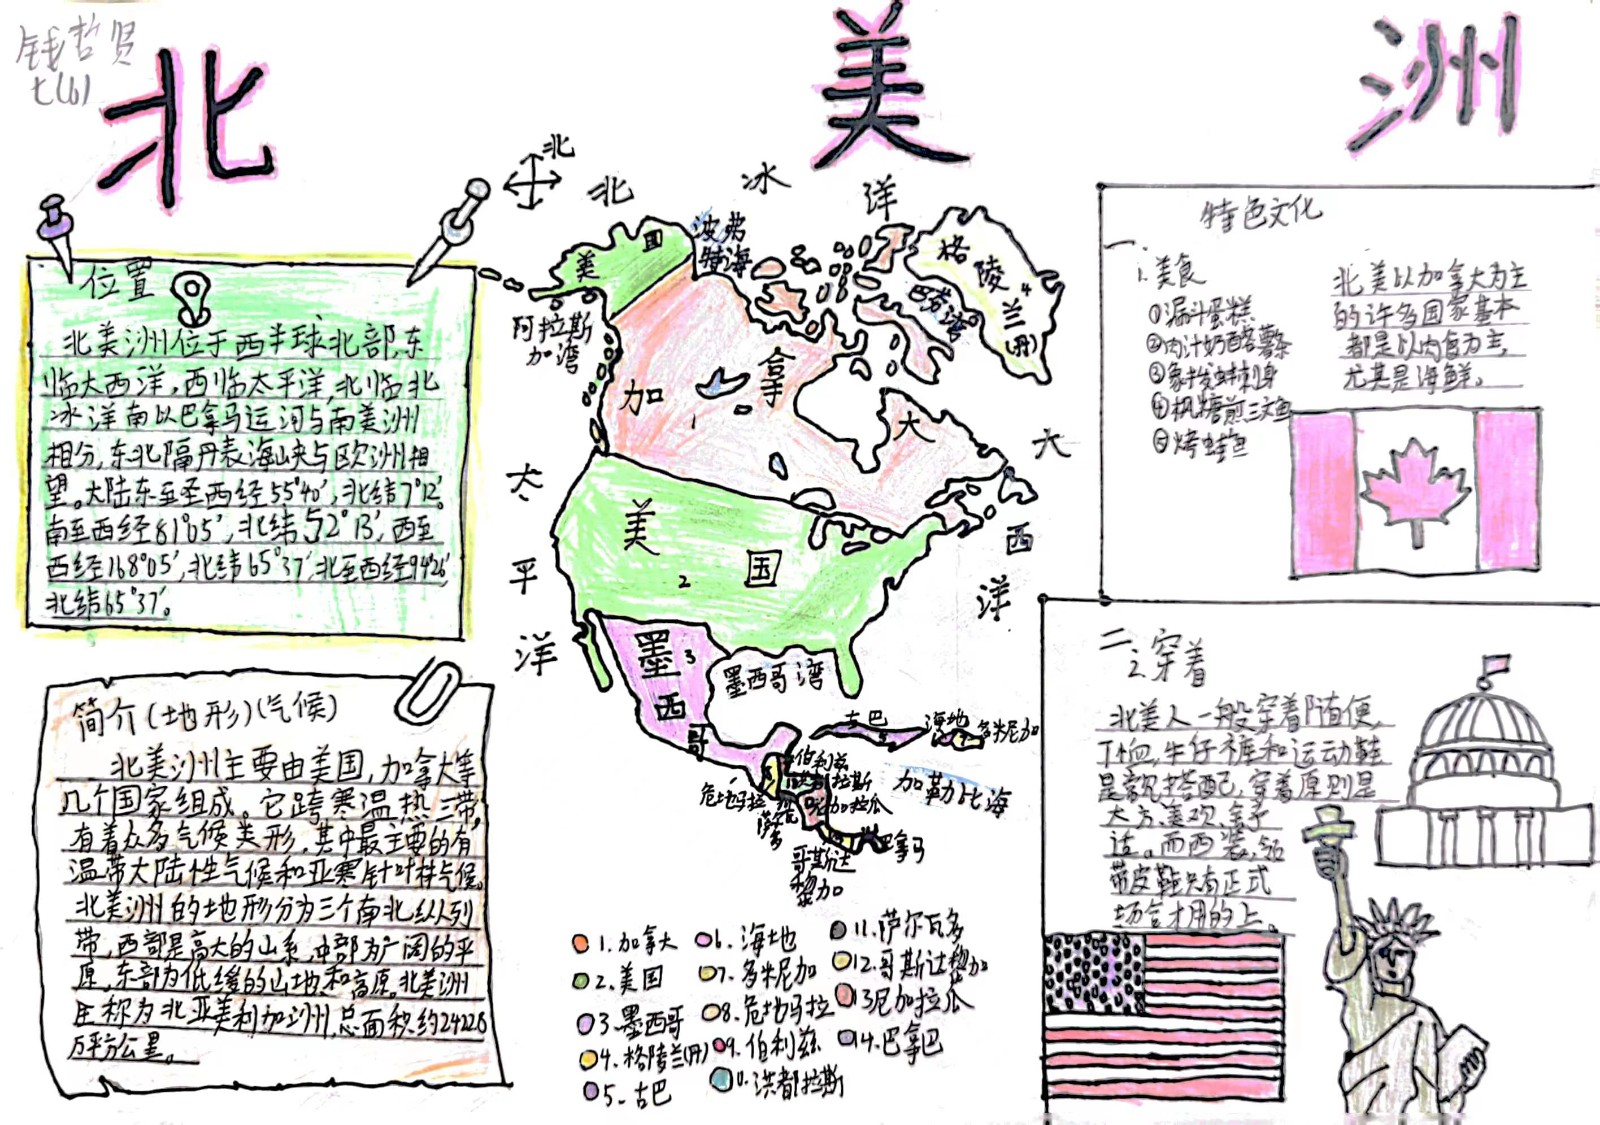 钱哲贤
七(6)
北美洲
北
位置
北美洲位于西半球北部,东
临大西洋,西临太平洋,北临北
冰洋南以巴拿马运河与南美洲
相分,东北隔丹表海峡与欧洲相
望。大陆东至至西经55°40′,北纬7°12′。
南至西经81°05′,北纬52°13′,西至
西经168°05′,北纬65°37′,北至西经94°26′
北纬65°37′。
简介(地形)(气候)
北美洲主要由美国,加拿大等
几个国家组成。它跨寒温热三带,
有着众多气候类形,其中最主要的有
温带大陆性气候和亚寒针叶林气候。
北美洲的地形分为三个南北纵列
带,西部是高大的山系,中部为广阔的平
原,东部为低缓的山地和高原。北美洲
全称为北亚美利加洲,总面积约2422.8
万平方公里。
北冰洋
太平洋
大西洋
美国
波弗
特海
格陵兰(丹)
4
巴芬湾
阿拉斯
加湾
加拿大
1
美国
2
墨西哥
3
墨西哥湾
古巴
5
海地
多米尼加
加勒比海
伯利兹
危地马拉
哥斯达
黎加
巴拿马
1.加拿大
2.美国
3.墨西哥
4.格陵兰(丹)
5.古巴
6.海地
7.多米尼加
8.危地马拉
9.伯利兹
10.洪都拉斯
11.萨尔瓦多
12.哥斯达黎加
13.尼加拉瓜
14.巴拿巴
特色文化
一、
1.美食
①漏斗蛋糕
②肉汁奶酪薯条
③象拔蚌刺身
④枫糖煎三文鱼
⑤烤鲑鱼
北美以加拿大为主
的许多国家基本
都是以肉食为主,
尤其是海鲜。
二、
2.穿着
北美人一般穿着随便,
T恤,牛仔裤和运动鞋
是常见搭配,穿着原则是
大方、美观、舒
适。而西装,领
带皮鞋只有正式
场合才用的上。